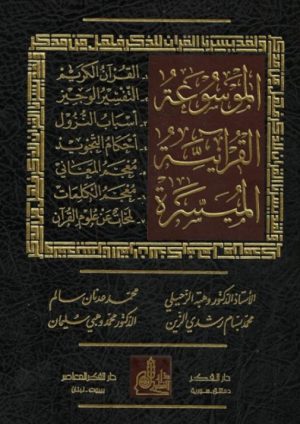 ولقد يسرنا القرآن للذكر فهل من مدكر
الموسوعة
القرآنية
الميسرة
القرآن الكريم
التفسير الوجيز
أسباب النزول
أحكام التجويد
معجم المعاني
معجم الكلمات
لمحات عن علوم القرآن
الأستاذ الدكتور وهبة الزحيلي
محمد عدنان سالم
محمد بسام رشدي الزين
الدكتور محمد وهبي سليمان
دار الفكر
دمشق - سورية
دار الفكر المعاصر
بيروت - لبنان